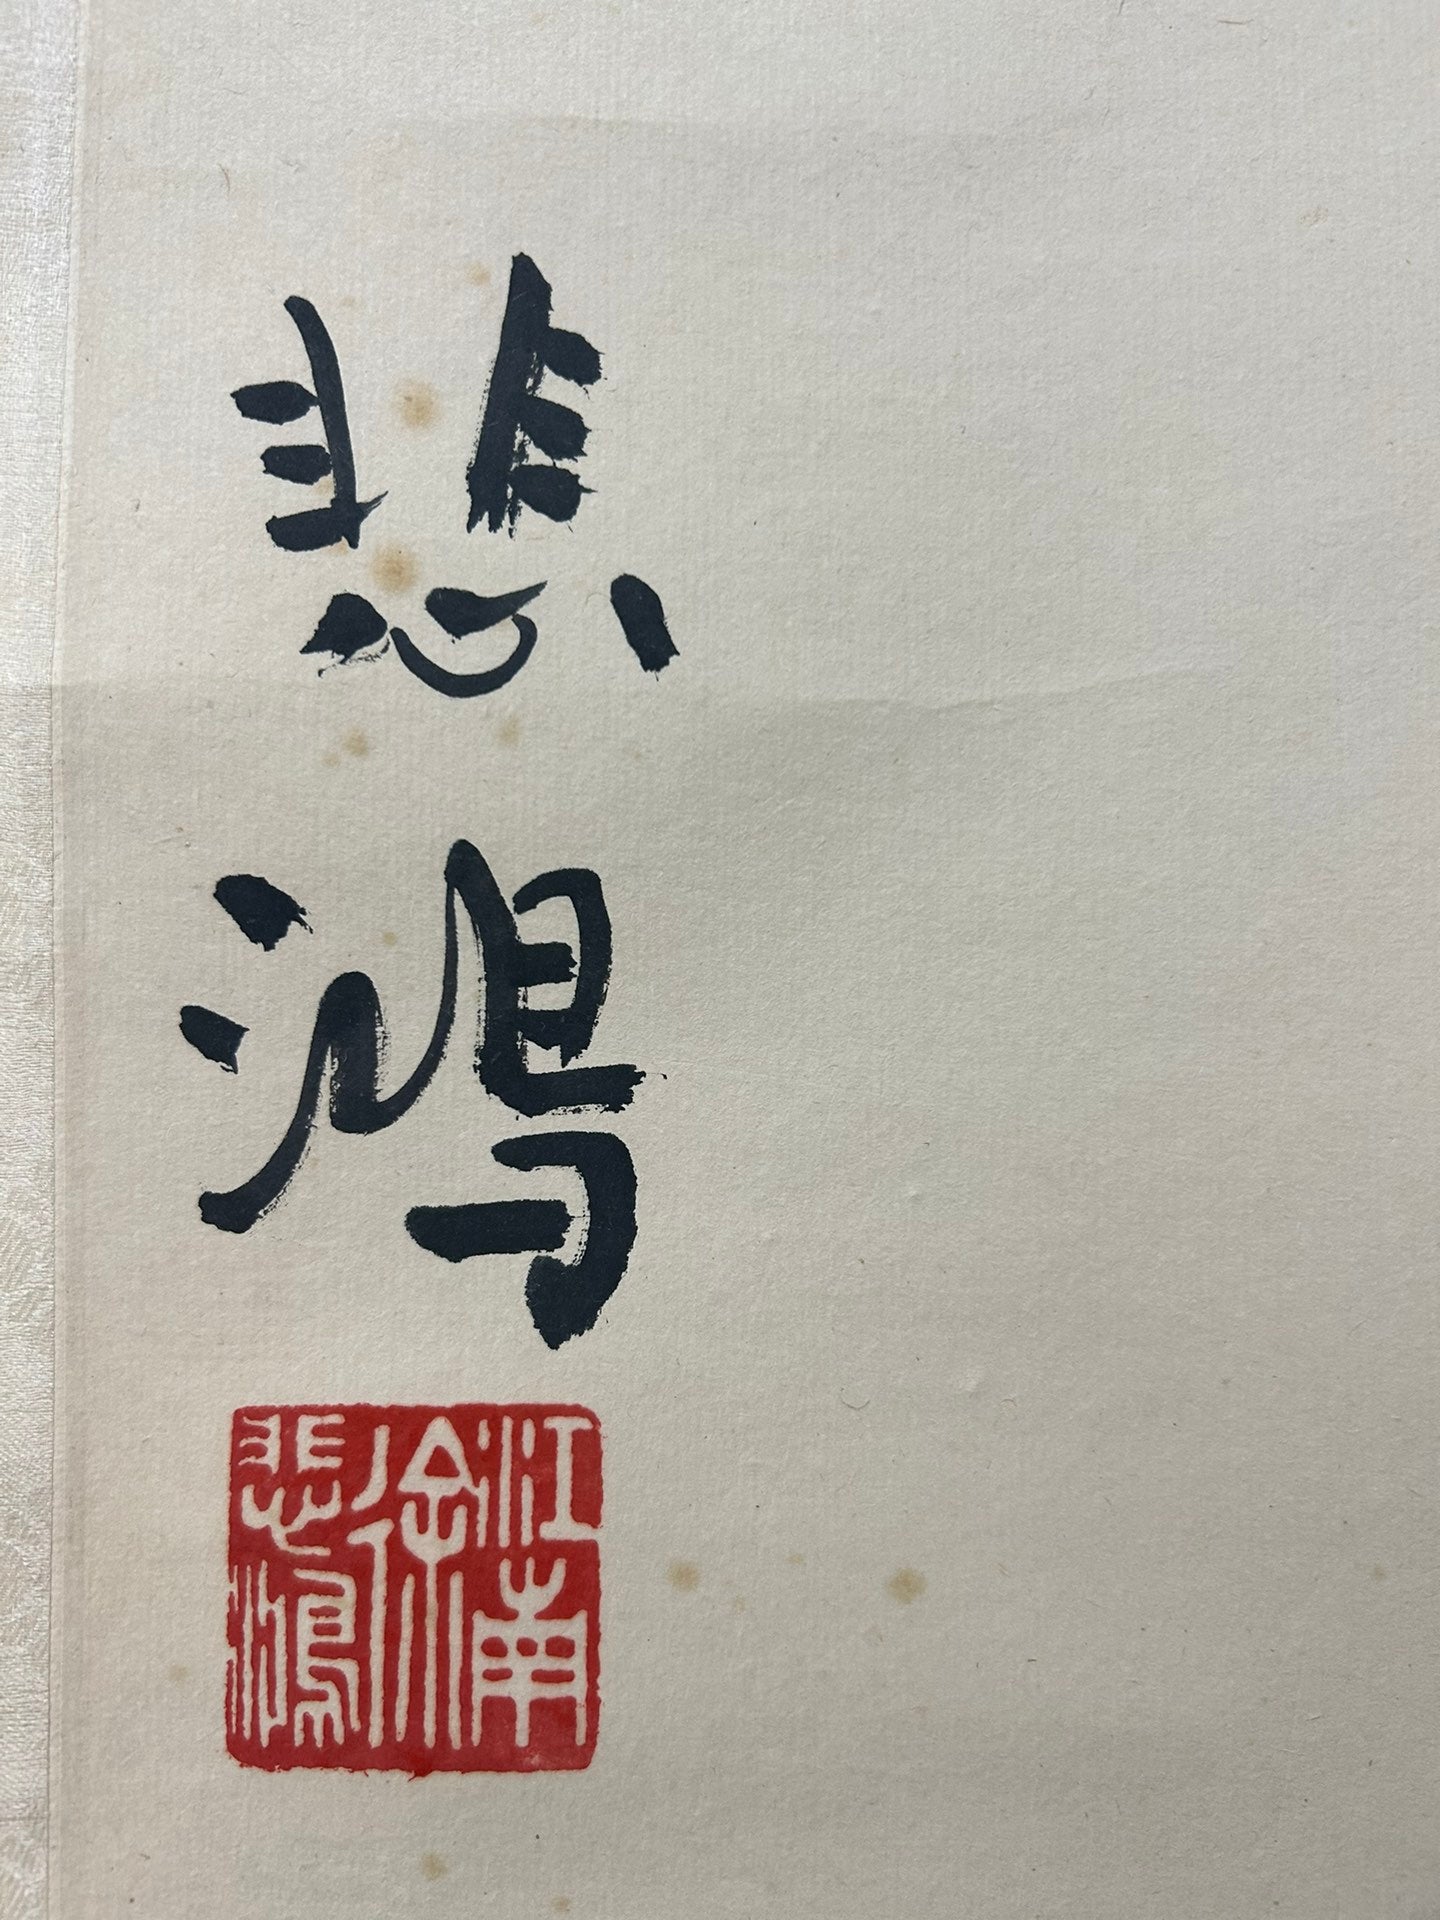 悲鸿
江南徐悲鴻